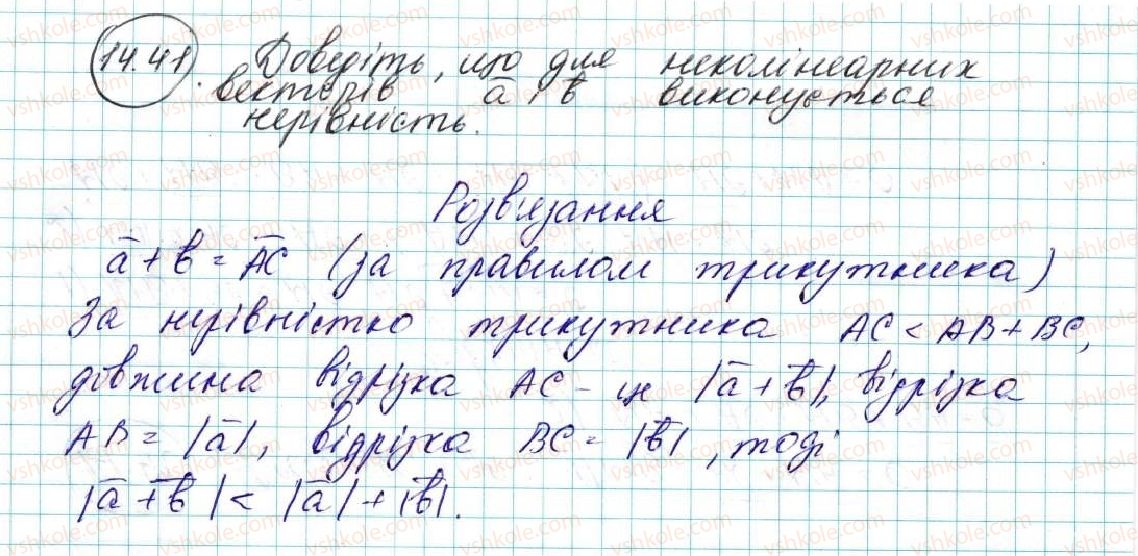 14.41. Доведіть, що для неколінеарних
векторів a̅ і b̅ виконується
нерівність.
Розв'язання
a̅ + b̅ = A̅C̅ (за правилом трикутника)
За нерівністю трикутника AC < AB + BC,
довжина відрізка AC - це |a̅ + b̅|, відрізка
AB = |a̅|, відрізка BC = |b̅|, тоді
|a̅ + b̅| < |a̅| + |b̅|.